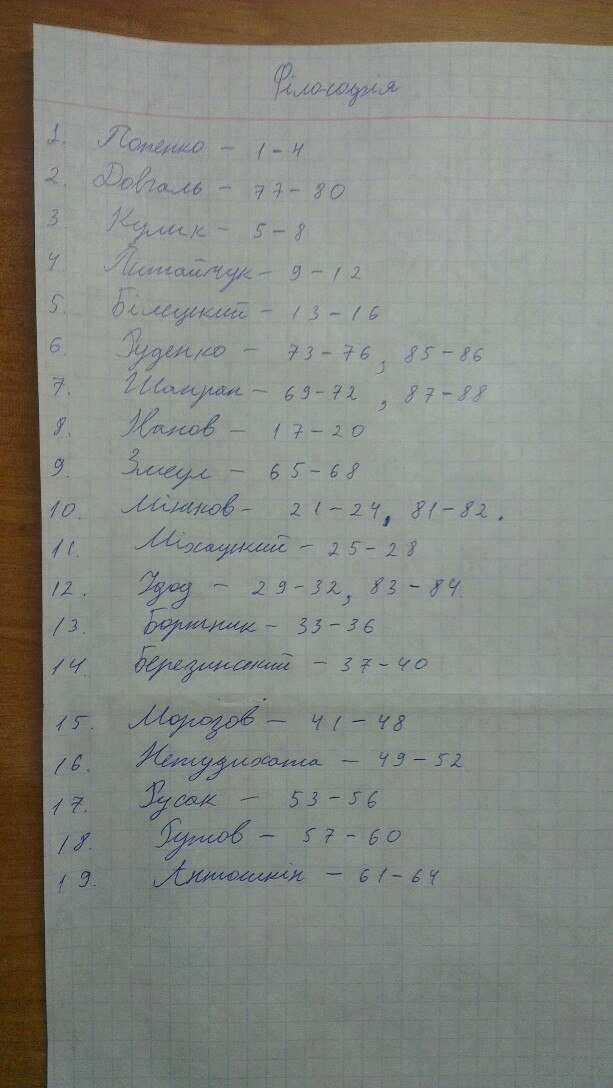 Філософия
1. Попенко – 1-4
2. Довгаль – 77-80
3 Кулик – 5-8
4. Литвичук – 9-12
5. Білецкий – 13-16
6. Руденко – 73-76, 85-86
7. Шапран – 69-72, 87-88
8. Иванов – 17-20
9. Змеул – 65-68
10. – 21-24, 81-82.
11. Міхацкий – 25-28
12. Удод – 29-32, 83-84
13. Бортник – 33-36
14. Березинский – 37-40
15. Морозов – 41-48
16. Нетудихата – 49-52
17. Русак – 53-56
18. – 57-60
19. Антошкін – 61-64